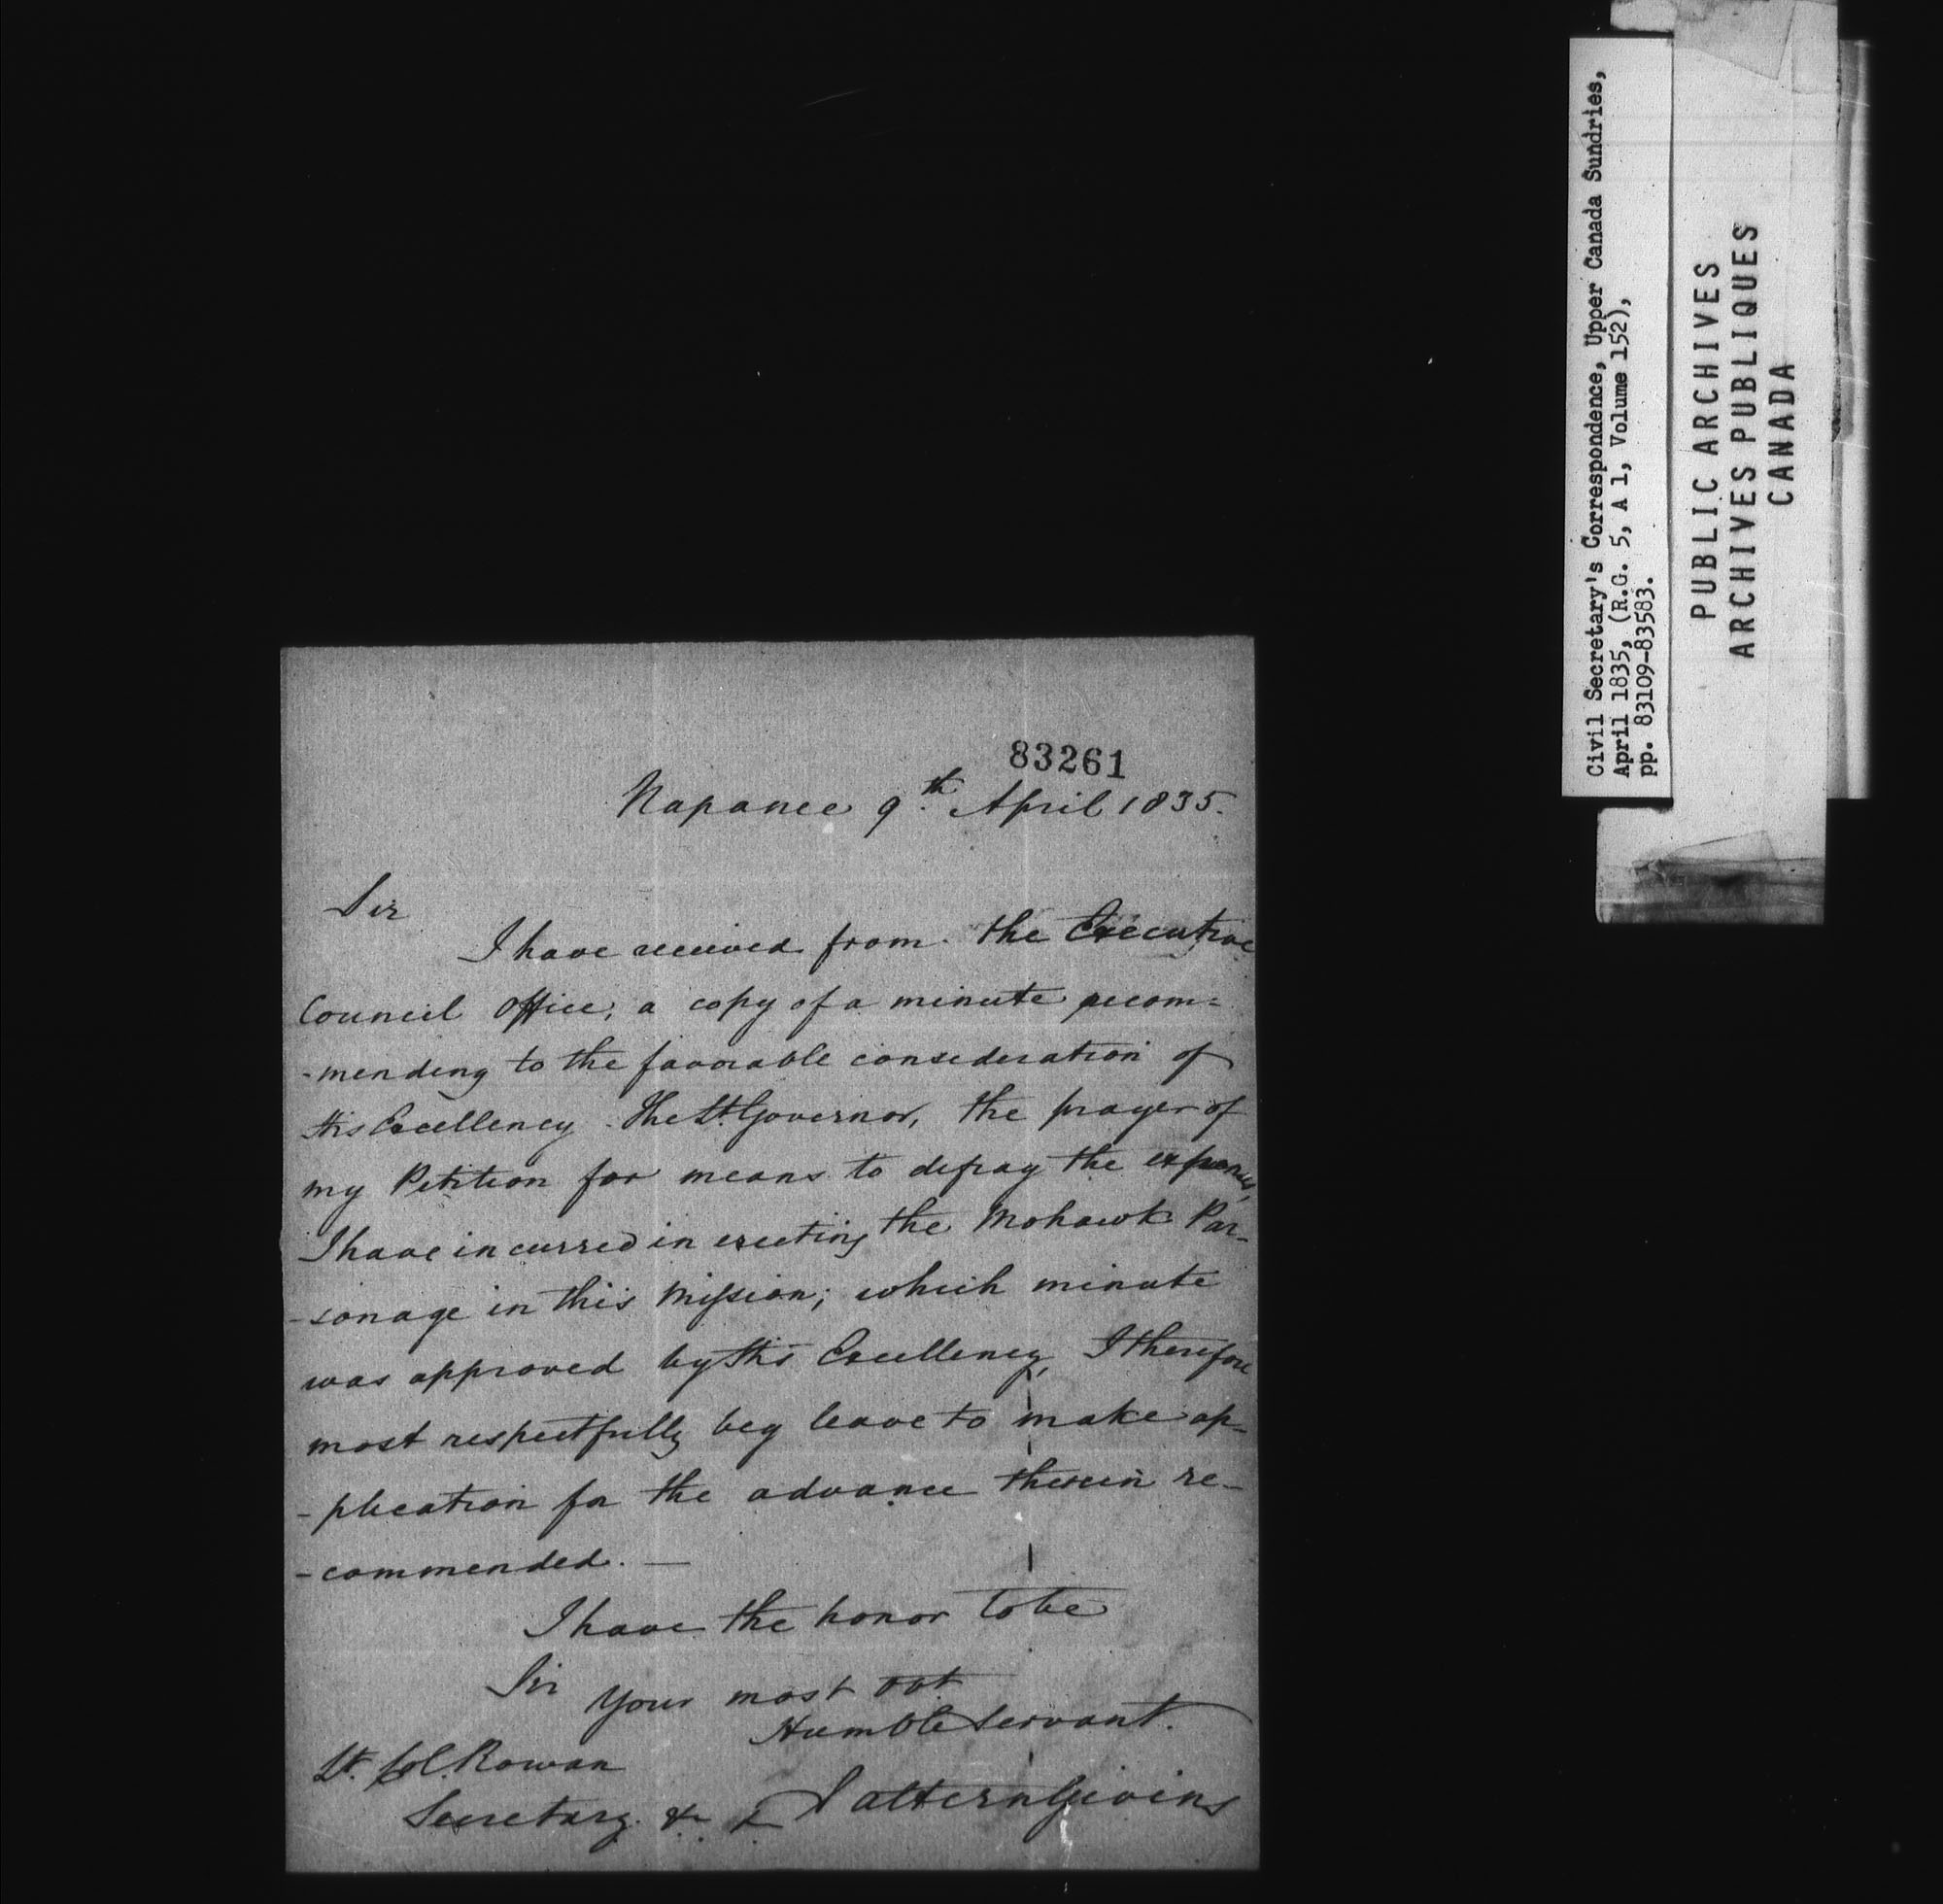 Civil Secretary's Correspondence, Upper Canada Sundries,
April 1835, (R.G. 5, A 1, Volume 152),
pp. 83109-83583.
PUBLIC ARCHIVES
ARCHIVES PUBLIQUES
CANADA
83261
Napanee 9th April 1835.
Sir
I have received from the Executive
Council Office, a copy of a minute recom=
-mending to the favorable consideration of
His Excellency the Lt. Governor, the prayer of
my Petition for means to defray the expenses,
I have incurred in erecting the Mohawk Par-
-sonage in this Mission; which minute
was approved by His Excellency, I therefore
most respectfully beg leave to make ap-
-plication for the advance therein re-
-commended. —
I have the honor to be
Sir
Your most obt
Humble Servant.
Lt. Col. Rowan
Secretary &c &c
Saltern Givins